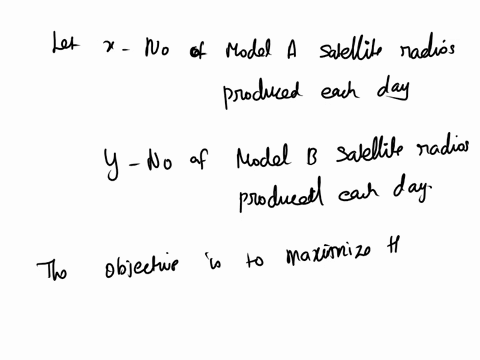 Let x - No of Model A satellite radios
produced each day
y - No of Model B satellite radios
produced each day.
The objective is to maximize